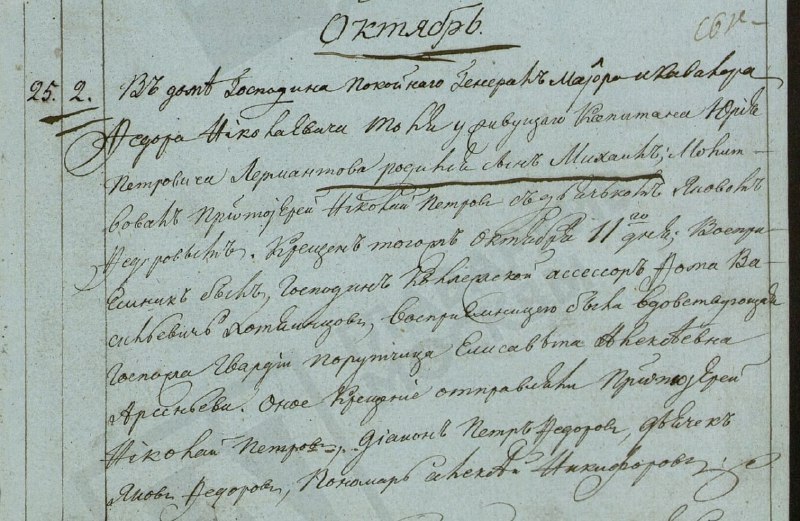 Октябрь.
25. 2. Въ домѣ Господина покойнаго Генералъ Маіора и кавалера
Ѳедора Николаевича Толя у живущаго Капитана Юрія
Петровича Лермантова родился сынъ Михаилъ; Молит-
вовалъ Протоіерей Николай Петровъ съ дьячькомъ Яковомъ
Ѳедоровымъ. Крещенъ тогожъ Октября 11го дня; Воспри-
емникъ былъ, Господинъ Коллежской ассессоръ Ѳома Ва-
сильевичъ Хотяинцовъ, Восприемницею была вдовствующая
Госпожа Гвардіи Порутчица Елисавѣта Алексѣевна
Арсеньева. Оное крещеніе отправляли Протоіерей
Николай Петровъ, Діаконъ Петръ Ѳедоровъ, дьячекъ
Яковъ Ѳедоровъ, Пономарь Алексѣй Никифоровъ.